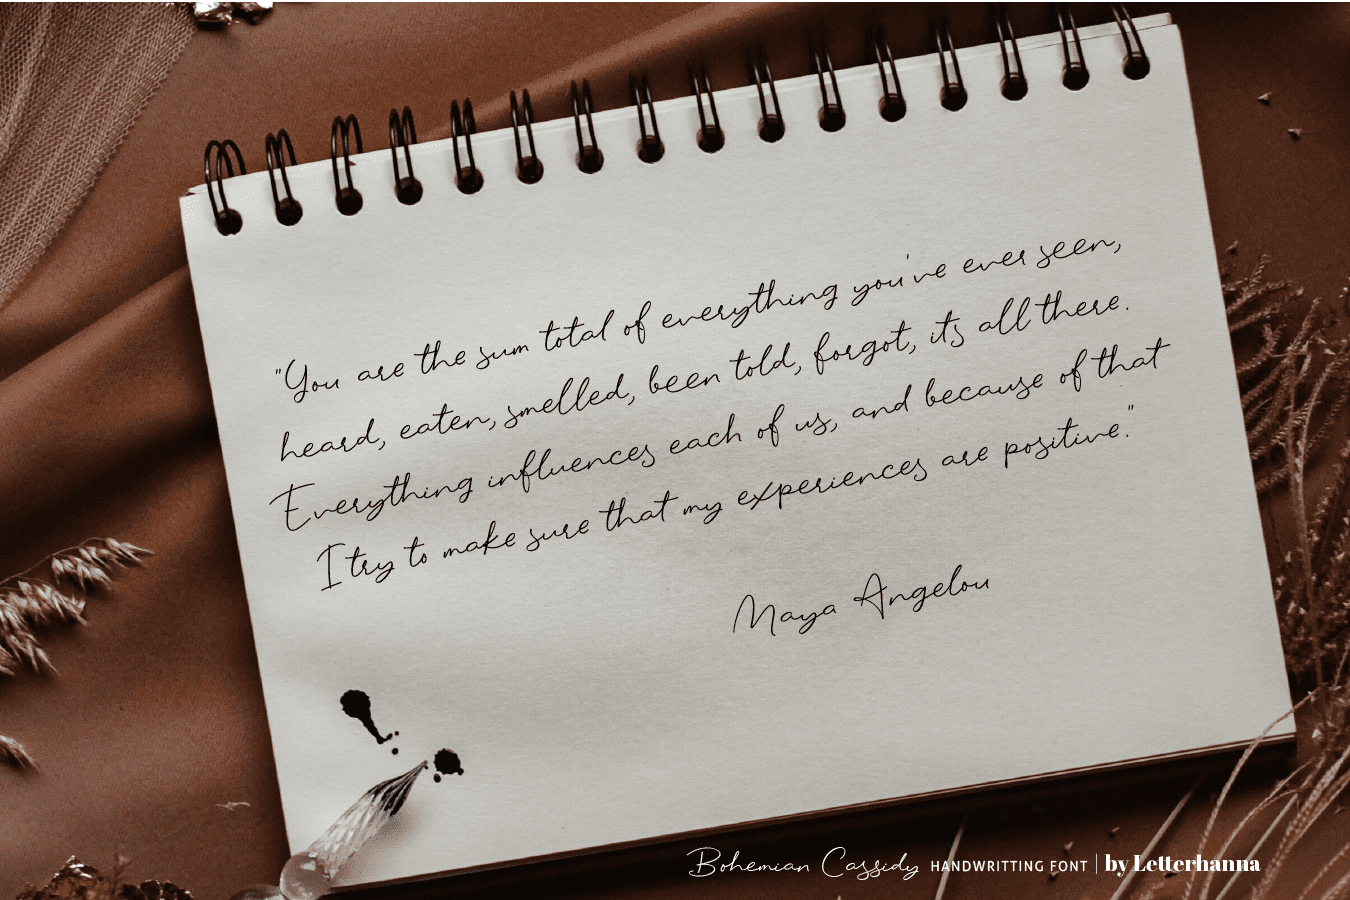 "You are the sum total of everything you've ever seen,
heard, eaten, smelled, been told, forgot, it's all there.
Everything influences each of us, and because of that
I try to make sure that my experiences are positive."
Maya Angelou
Bohemian Cassidy HANDWRITTING FONT | by Letterhanna